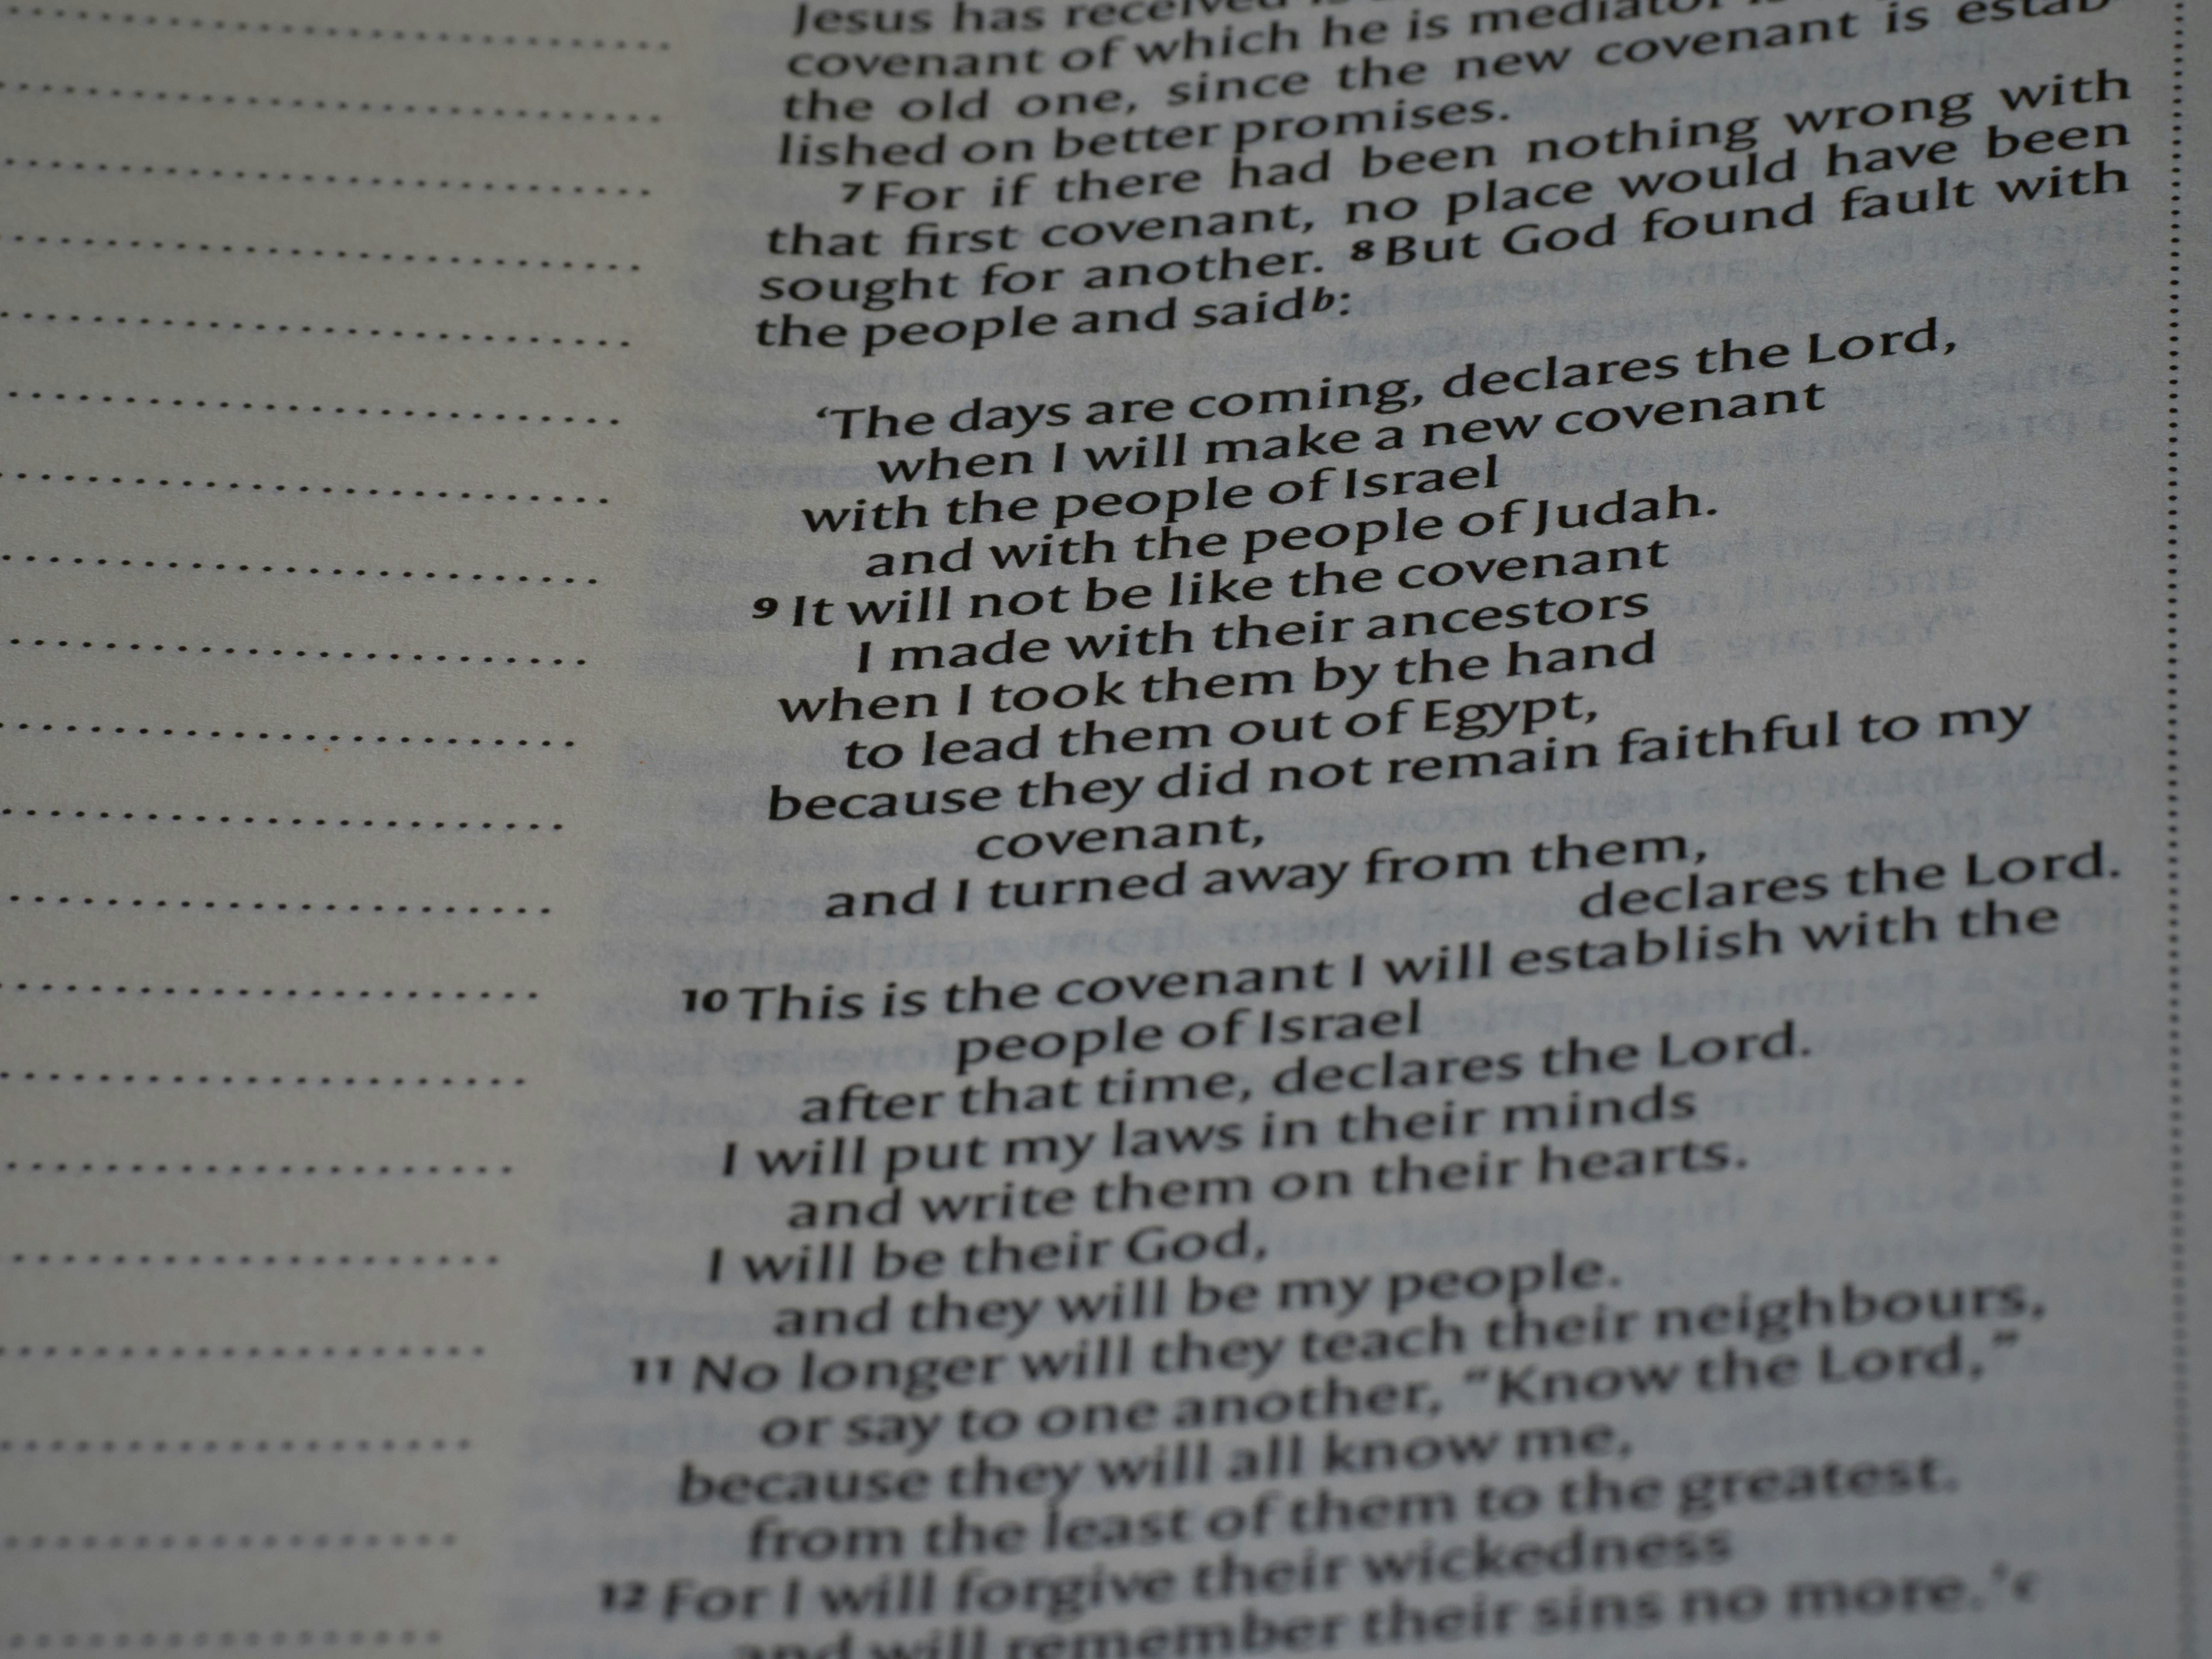 Jesus has received
covenant of which he is mediator
the old one, since the new covenant is estab
lished on better promises.
7 For if there had been nothing wrong with
that first covenant, no place would have been
sought for another. 8 But God found fault with
the people and said b:
‘The days are coming, declares the Lord,
when I will make a new covenant
with the people of Israel
and with the people of Judah.
9 It will not be like the covenant
I made with their ancestors
when I took them by the hand
to lead them out of Egypt,
because they did not remain faithful to my
covenant,
and I turned away from them,
declares the Lord.
10 This is the covenant I will establish with the
people of Israel
after that time, declares the Lord.
I will put my laws in their minds
and write them on their hearts.
I will be their God,
and they will be my people.
11 No longer will they teach their neighbours,
or say to one another, “Know the Lord,”
because they will all know me,
from the least of them to the greatest.
12 For I will forgive their wickedness
and will remember their sins no more.’ c